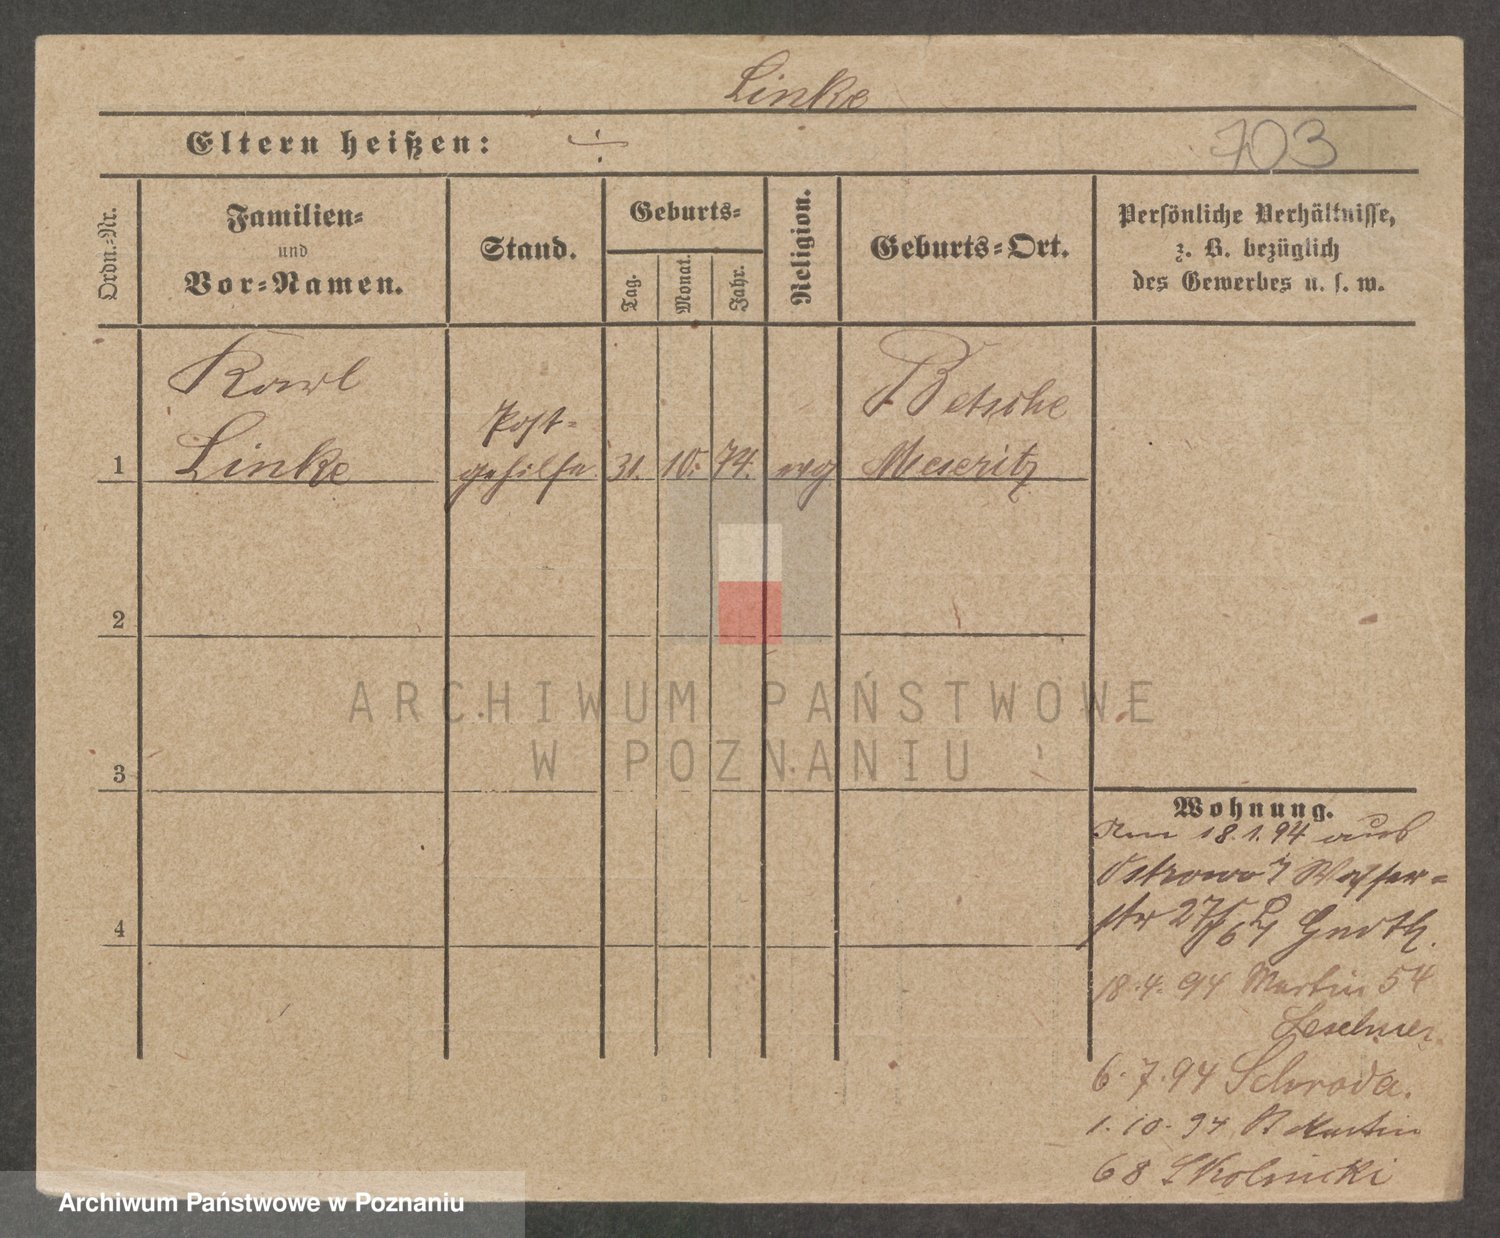 Linke
Eltern heißen: ÷
703
Ordn.-Nr.
Familien-
und
Vor-Namen.
Stand.
Geburts-
Tag.
Monat.
Jahr.
Religion.
Geburts-Ort.
Persönliche Verhältnisse,
z. B. bezüglich
des Gewerbes u. s. w.
Karl
Linke
Post-
gehilfe
31. 10. 74. evg
Betsche
Meseritz
1
2
3
4
ARCHIWUM PAŃSTWOWE
W POZNANIU
Wohnung.
18.1.94 aus
Ostrowo Wasser-
str 27
18.4.94 Martin 54
6.7.94 Schroda.
1.10.94 St Martin
68 Skolnicki
Archiwum Państwowe w Poznaniu